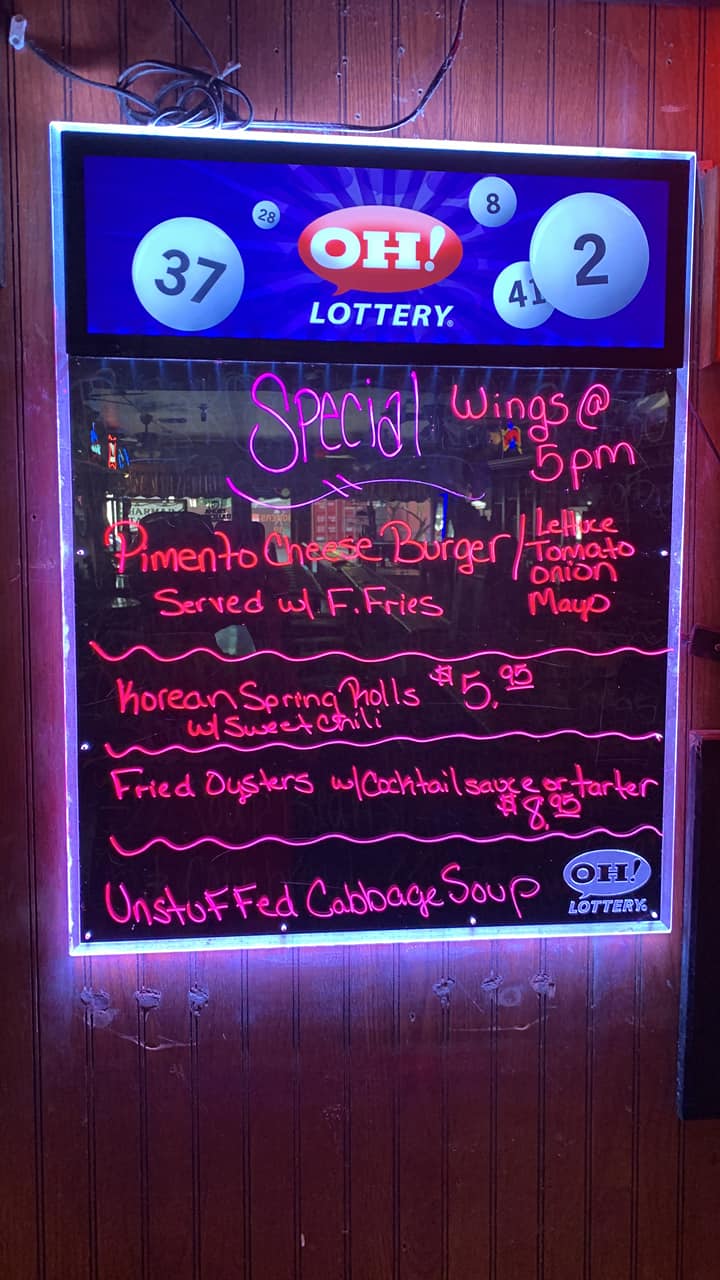 37
28
8
41
2
OH!
LOTTERY®
Special
Wings @
5pm
Pimento Cheese Burger/
Lettuce
Tomato
onion
Mayo
Served w/ F. Fries
Korean Spring Rolls $5.95
w/ Sweet Chili
Fried Oysters w/Cocktail sauce or tarter
$8.95
Unstuffed Cabbage Soup
OH!
LOTTERY®